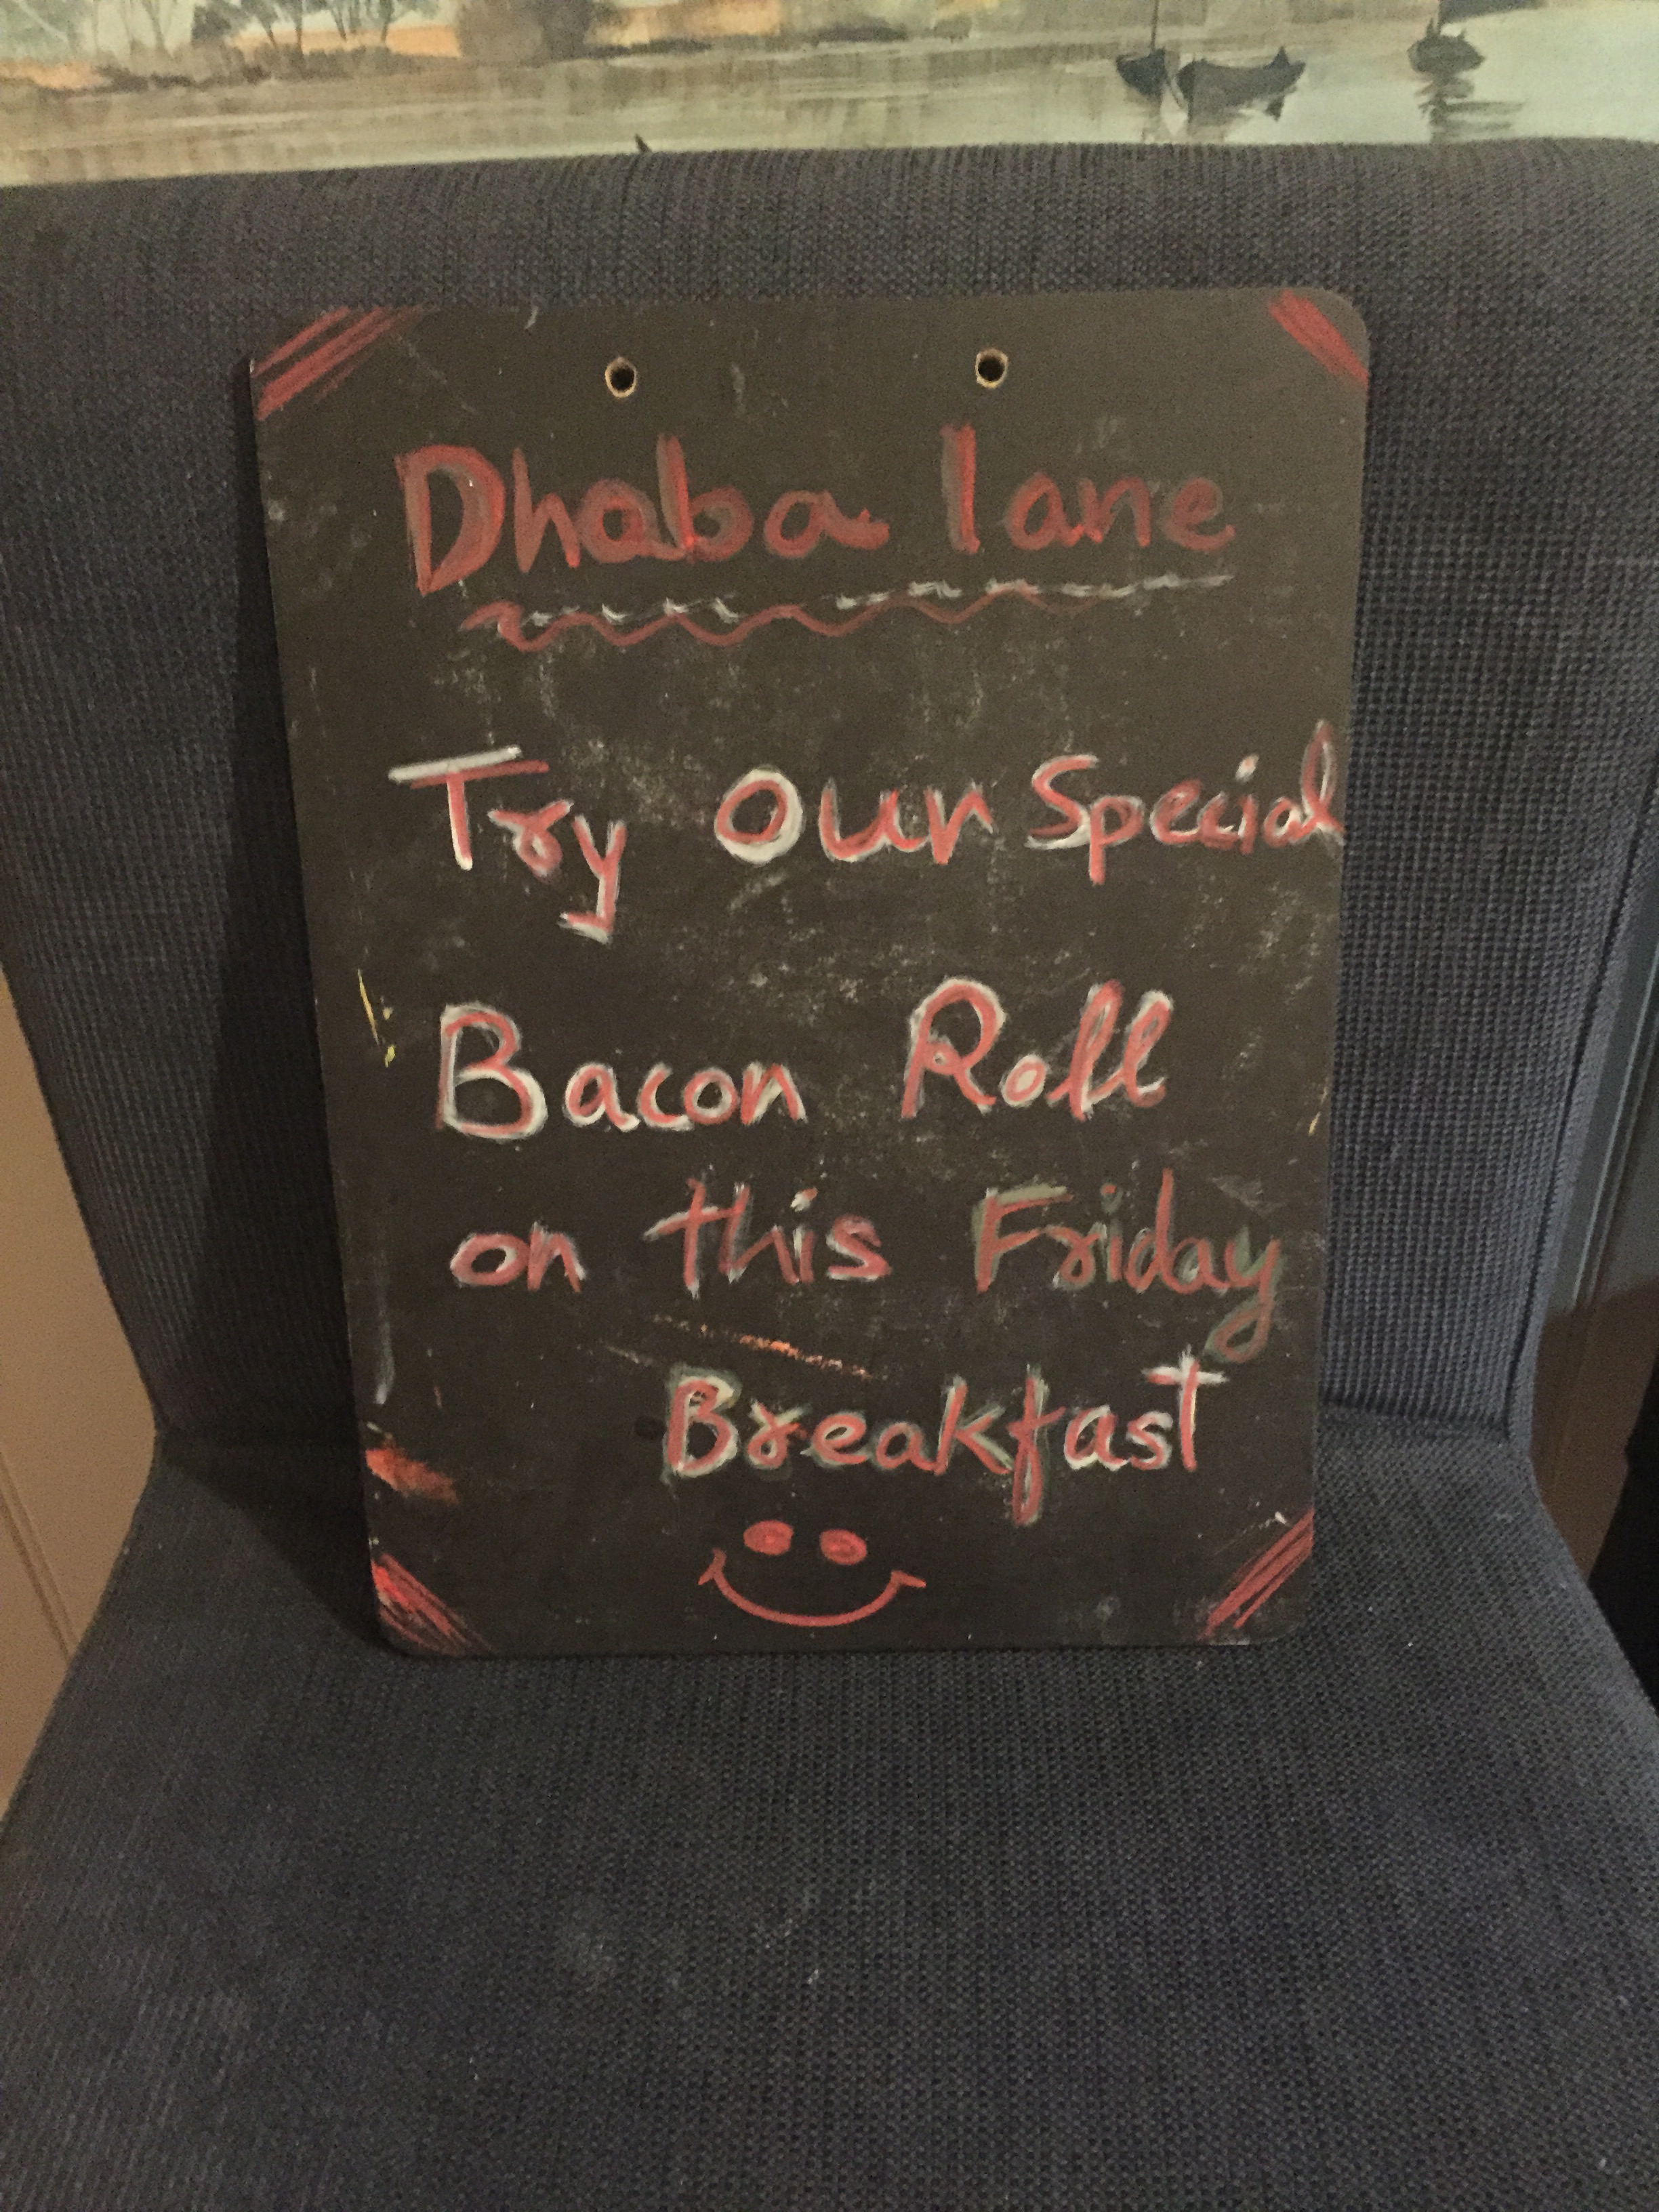 Dhaba lane
Try Our Special
Bacon Roll
on this Friday
Breakfast